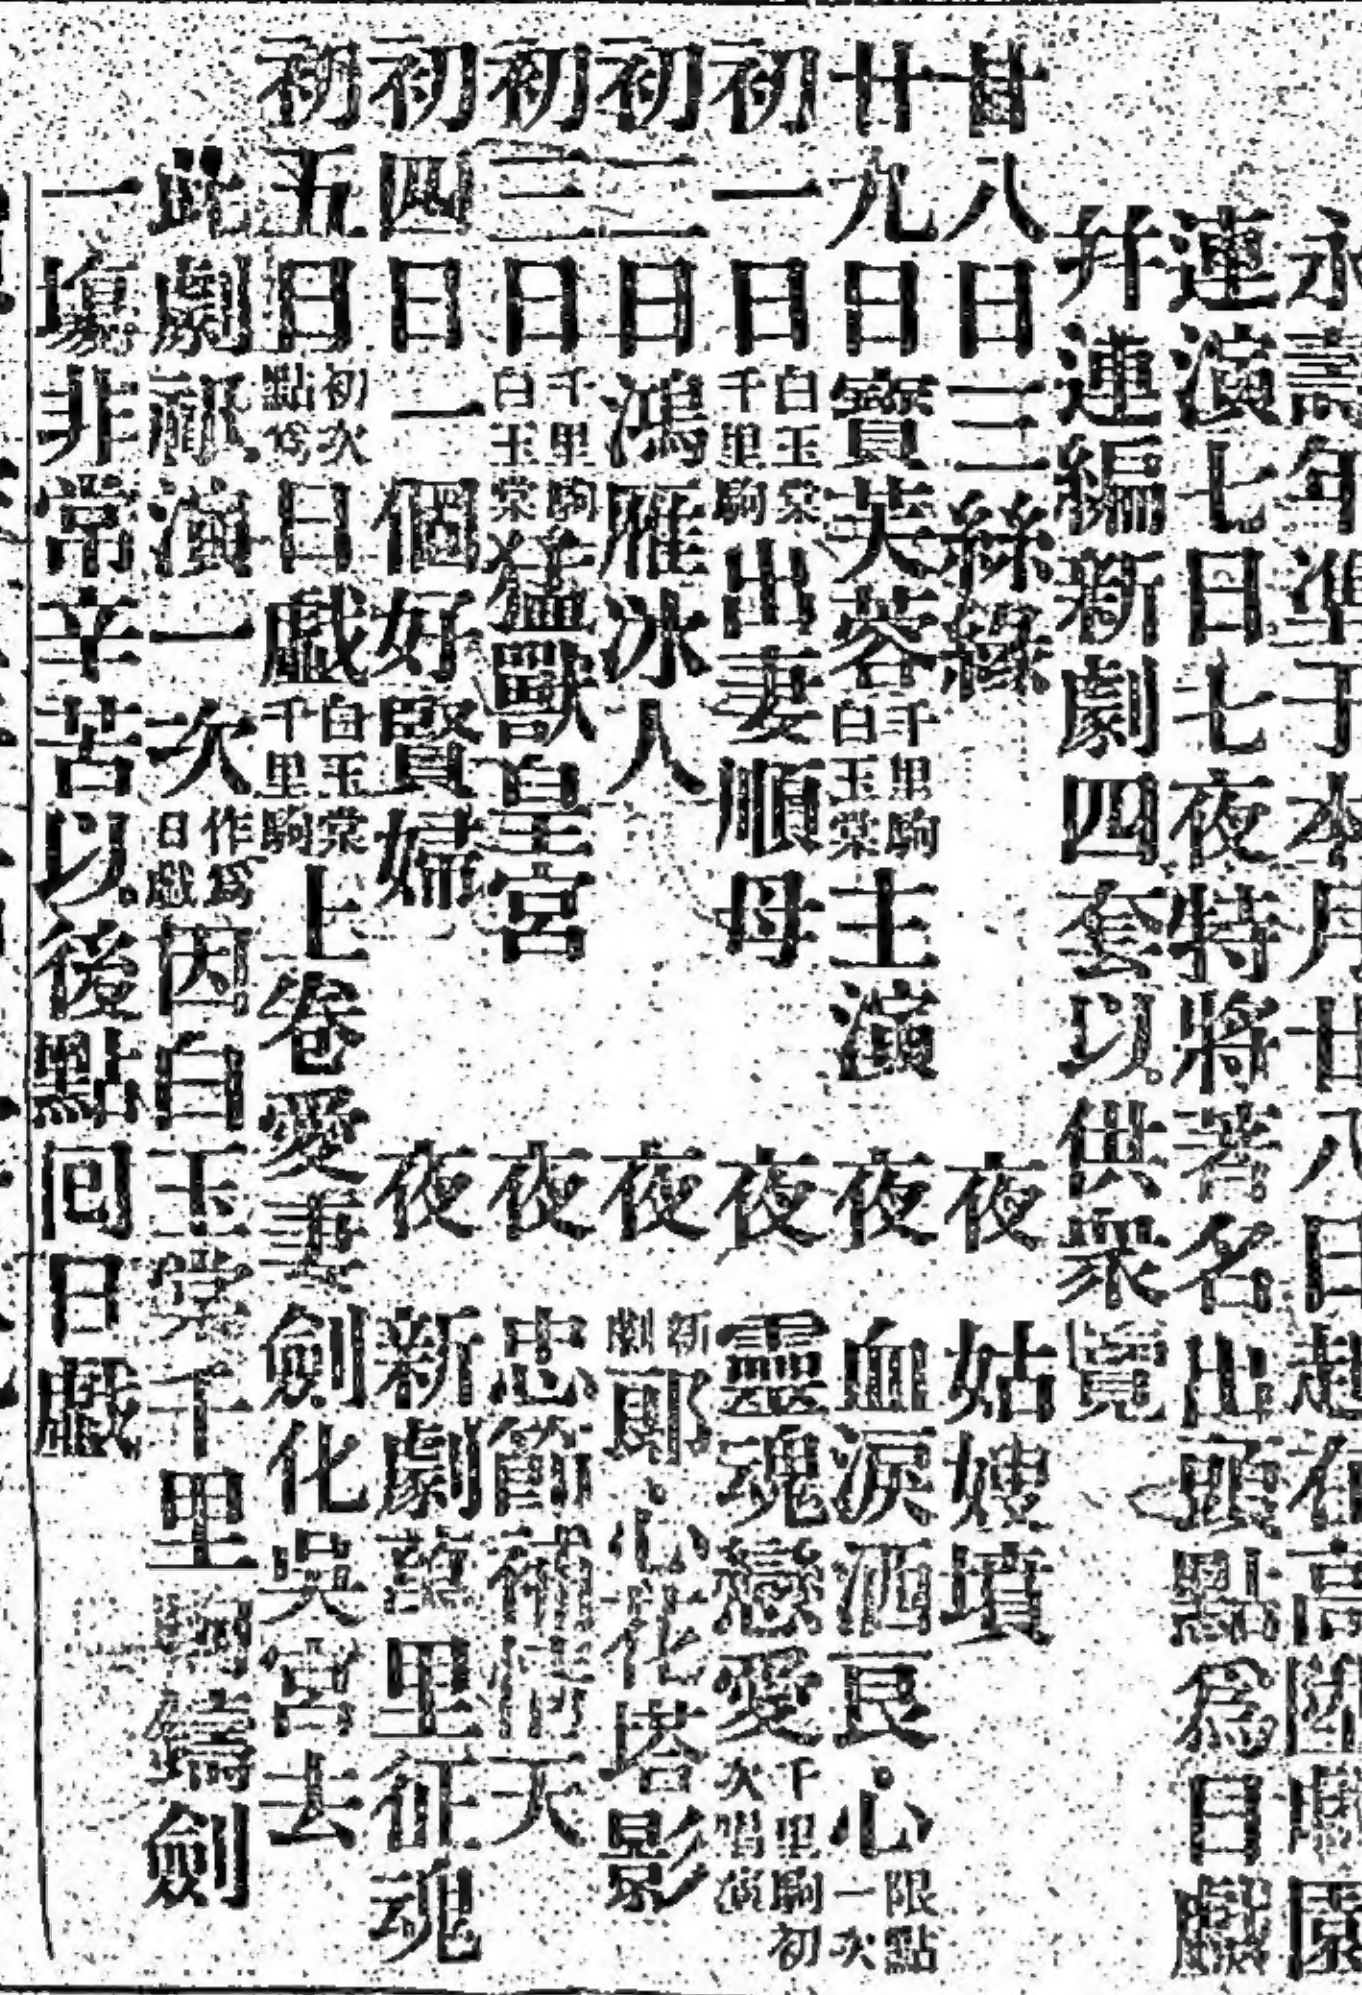 永壽年準于本月廿八日起在高陞戲園
連演七日七夜特將著名出頭點爲日戲
幷連編新劇四套以供衆覽
廿八日三絲綠 夜 姑嫂墳
廿九日寶芙蓉千里駒白玉棠主演 夜 血淚洒良心限點一次
初一日白玉棠千里駒出妻順母 夜 靈魂戀愛千里駒初次唱演
初二日鴻雁冰人 夜 新劇郎心花塔影
初三日千里駒白玉棠猛獸皇宮 夜 忠節補情天
初四日一個好賢婦 夜 新劇萬里征魂
初五日初次點爲日戲白玉棠千里駒上卷愛妻劍化吳宮去
此劇祗演一次作爲日戲因白玉棠千里駒鑄劍
一塲非常辛苦以後點囘日戲